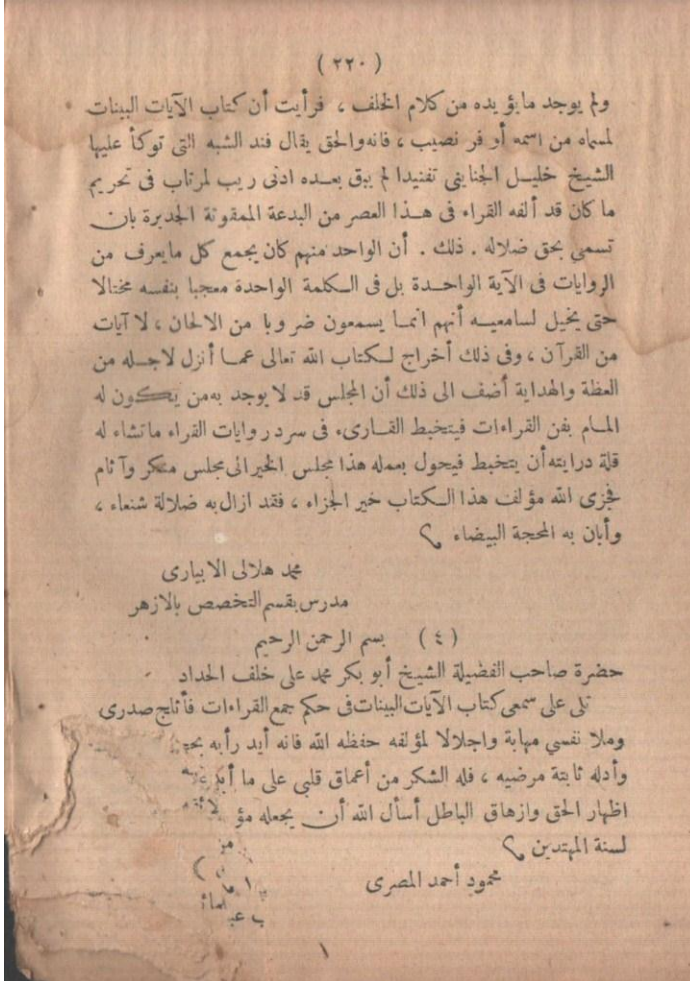 ( ٢٢٠ )
ولم يوجد ما يؤيده من كلام الخلف ، فرأيت أن كتاب الآيات البينات
لمسماه من اسمه أوفر نصيب ، فانه والحق يقال فند الشبه التى توكأ عليها
الشيخ خليل الجنايني تفنيدا لم يبق بعده ادنى ريب لمرتاب فى تحريم
ما كان قد ألفه القراء فى هذا العصر من البدعة الممقوتة الجديرة بان
تسمى بحق ضلاله . ذلك . أن الواحد منهم كان يجمع كل ما يعرف من
الروايات فى الآية الواحدة بل فى الكلمة الواحدة معجبا بنفسه مختالا
حتى يخيل لسامعيه أنهم انما يسمعون ضروبا من الالحان ، لا آيات
من القرآن ، وفى ذلك أخراج لكتاب الله تعالى عما أنزل لاجله من
العظة والهداية أضف الى ذلك أن المجلس قد لا يوجد به من يكون له
المام بفن القراءات فيتخبط القارىء فى سرد روايات القراء ما تشاء له
قلة درايته أن يتخبط فيحول بعمله هذا مجلس الخير الى مجلس منكر وآثام
فجزى الله مؤلف هذا الكتاب خير الجزاء ، فقد ازال به ضلالة شنعاء ،
وأبان به المحجة البيضاء
محمد هلالى الابيارى
مدرس بقسم التخصص بالازهر
( ٤ ) بسم الرحمن الرحيم
حضرة صاحب الفضيلة الشيخ أبو بكر محمد على خلف الحداد
تلى على سمعى كتاب الآيات البينات فى حكم جمع القراءات فأثلج صدرى
وملا نفسي مهابة واجلالا لمؤلفه حفظه الله فانه أيد رأيه
وأدله ثابتة مرضيه ، فله الشكر من أعماق قلبى على ما
اظهار الحق وازهاق الباطل أسأل الله أن يجعله
لسنة المهتدين
محمود أحمد المصرى